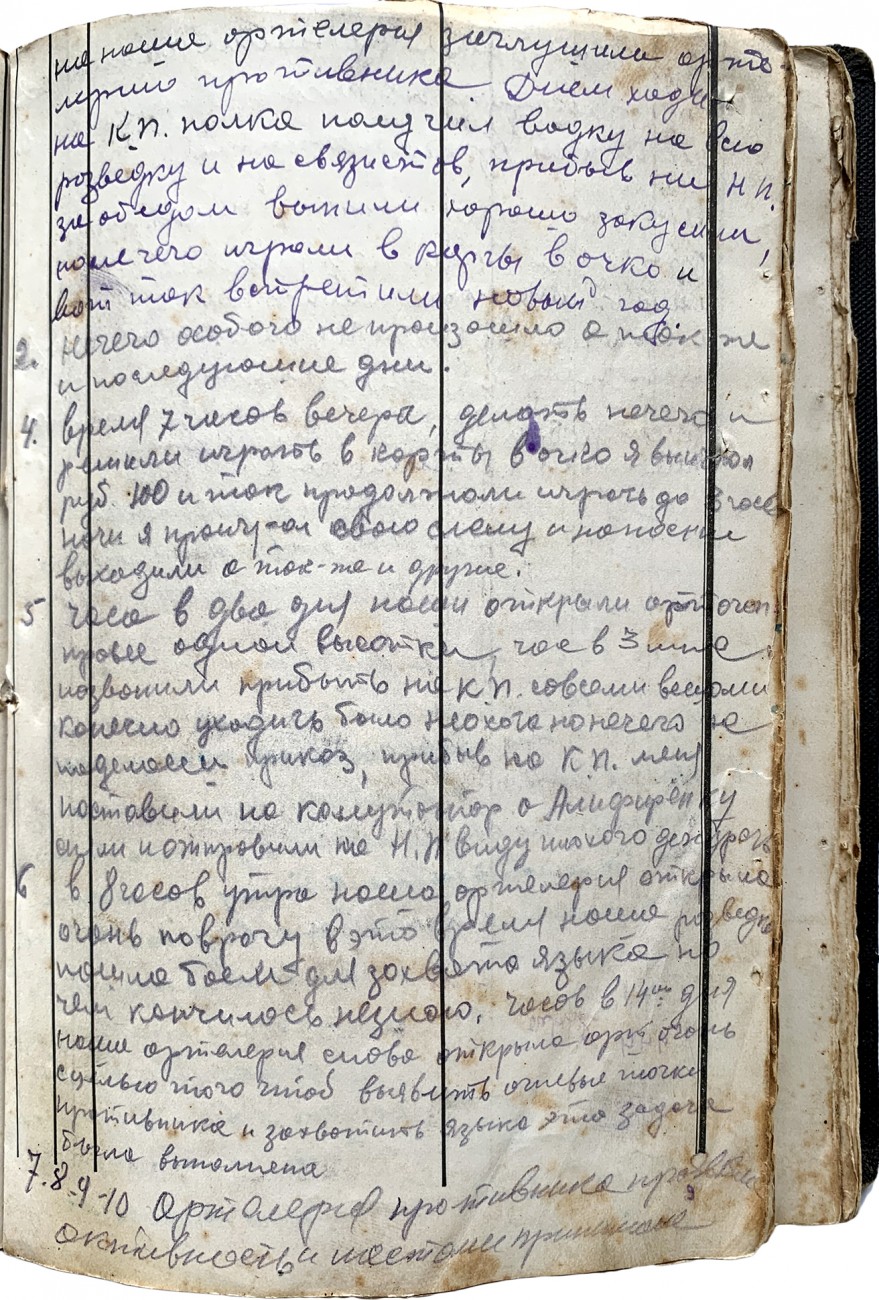 но наша артелерия заглушила арте-
лерию противника Днём ходил
на К.П. полка получил водку на всю
розведку и на связистов, прибыв на Н.П.
за обедом выпили хорошо закусили,
после чего играли в карты в очко и
вот так встретили новый год
2. нечего особого не произошло а так же
и последующие дни.
4. время 7 часов вечера, делать нечего и
решили играть в карты в очко я выиграл
руб. 100 и так продолжали играть до 3 часов
ночи я проиграл свою и
выходили а так-же и другие.
5 часа в два дня наши открыли арт очен
провее одной высотки, час в 3 мне
позвонили прибыть на К.П. совсеми вещами
конечно уходить было неохота но нечего не
поделаеш приказ, прибыв на К.П. меня
поставили на комутотор а Алифирёнку
сняли и отправили на Н.П ввиду плохого дежурать
6 в 8 часов утра наша артелерия открыла
огонь поврагу в это время наша розведка
пошла боем для захвата языка но
чем кончилось незнаю, часов в 14 дня
наша артелерия снова открыла арт огонь
сцелью того чтоб выявить огневые точки
противника и захватить языка эта задача
была выполнена
7.8-9-10 Артелерия противника проявляла
активность и местами